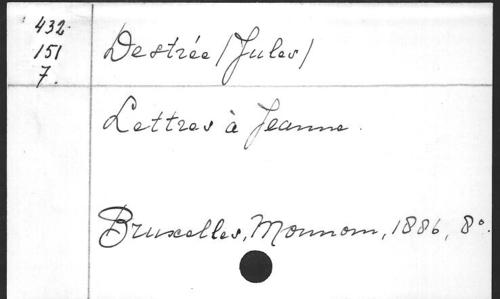 432
151
7.
Destrée (Jules)
Lettres à Jeanne.
Bruxelles, Monnom, 1886, 8°.